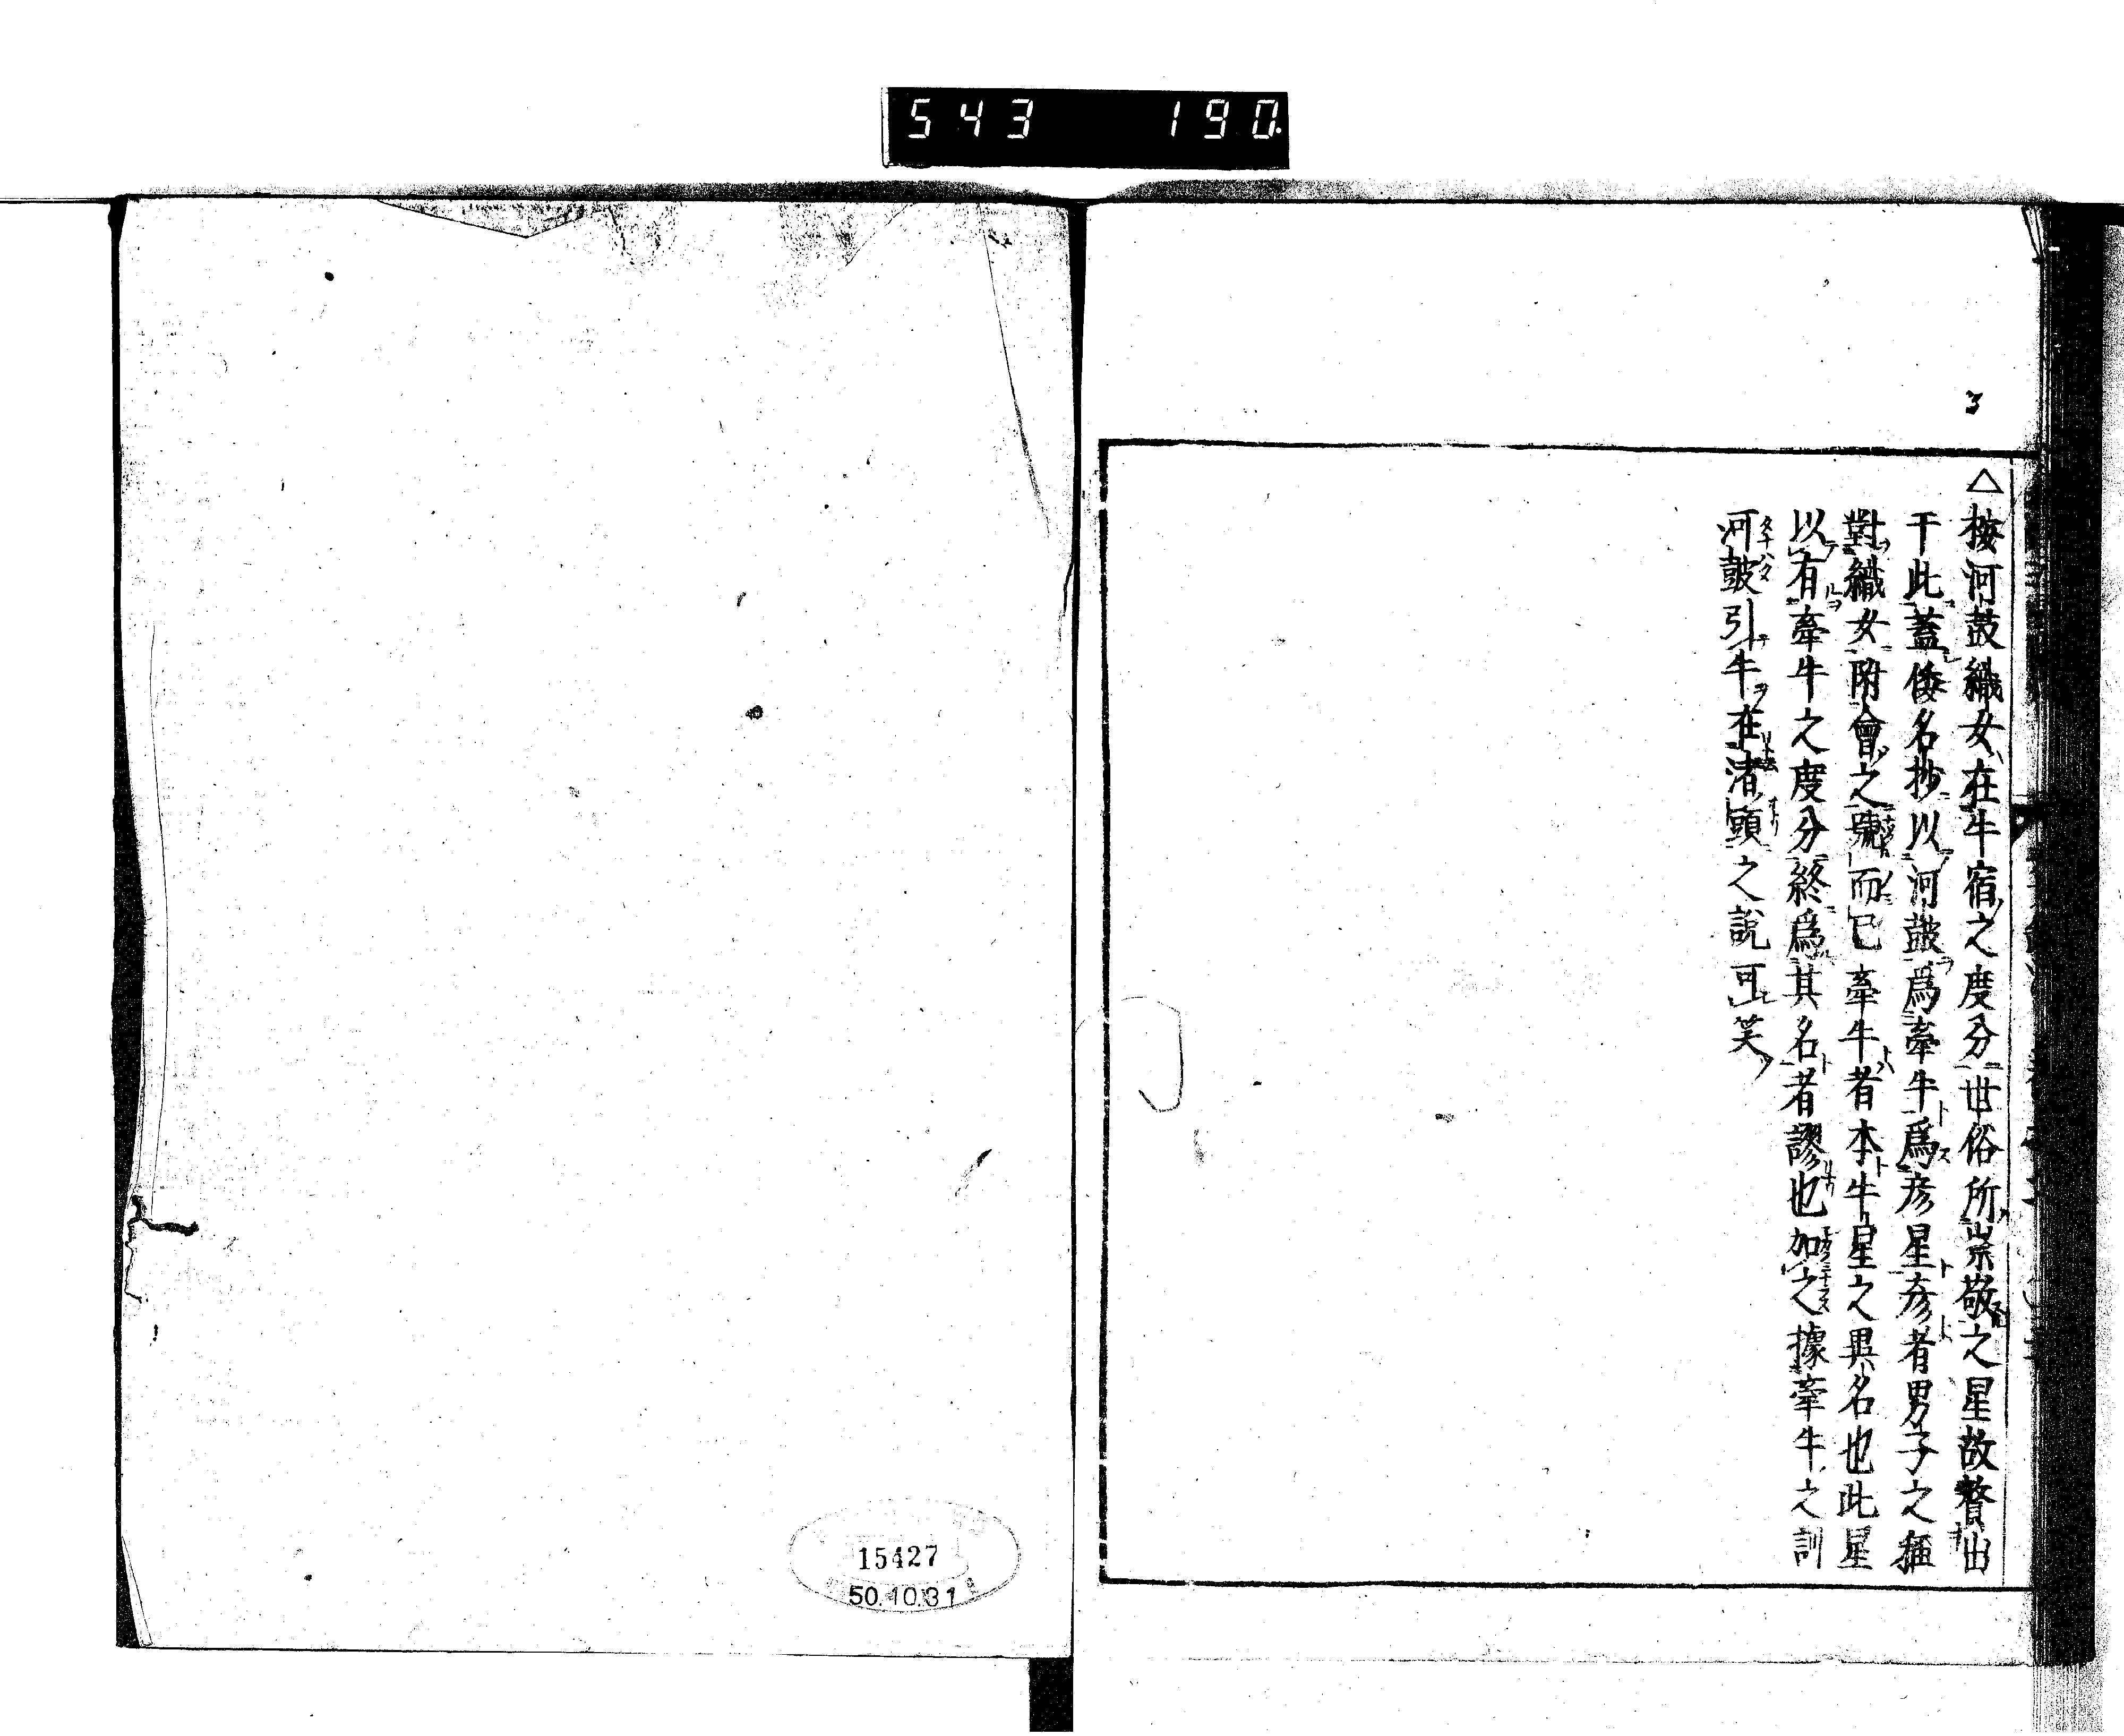 543 190.
3
△按河鼓織女在牛宿之度分世俗所崇敬之星故贅出
于此蓋倭名抄以河鼓爲牽牛爲彦星彦者男子之稱
對織女附會之號而已牽牛者本牛星之異名也此星
以有牽牛之度分終爲其名者謬也加之據牽牛之訓
河鼓引牛在渚頭之説可笑
15427
50.10.31